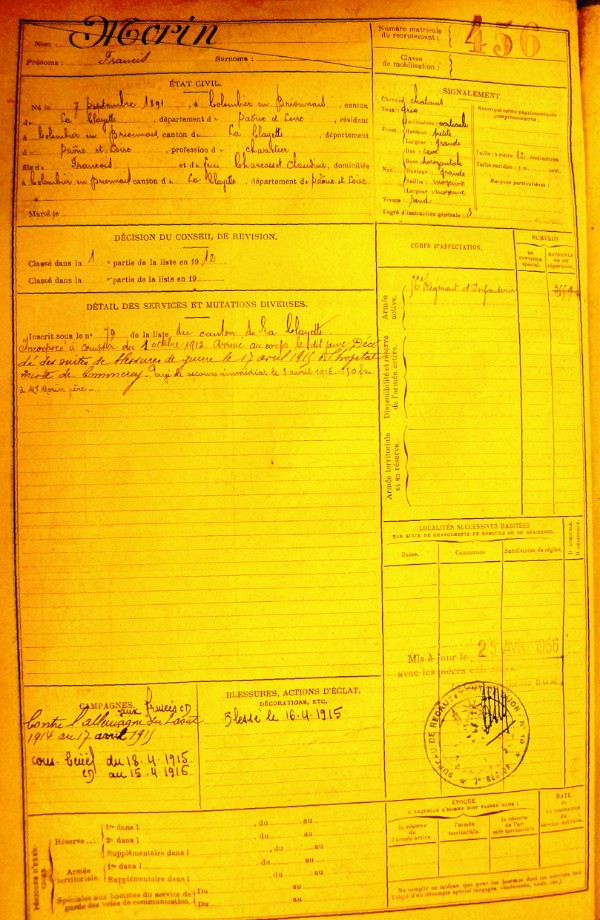 Nom : Morin
Prénoms : Francis Surnoms :
Numéro matricule
du recrutement :
456
Classe
de mobilisation :
ÉTAT CIVIL.
Né le 7 septembre 1891, à Colombier en Brionnais, canton
de La Clayette, département de Saône et Loire, résident
à Colombier en Brionnais, canton de La Clayette, département
de Saône et Loire, profession de
fils de Francois et de Claudine, domiciliés
à Colombier en Brionnais canton de La Clayette, département de Saône et Loire
Marié le
SIGNALEMENT.
Cheveux
Yeux gris
Front
Inclinaison verticale
Hauteur petite
Largeur grande
Nez
Dos cave
Base horizontale
Hauteur grande
Saillie moyenne
Largeur moyenne
Visage rond
Renseignements physionomiques
complémentaires
Taille : 1 mètre 62 centimètres
Taille rectifiée : 1 m. cent.
Marques particulières :
Degré d'instruction générale : 3
DÉCISION DU CONSEIL DE REVISION.
Classé dans la 1 e partie de la liste en 1912
Classé dans la e partie de la liste en 19
CORPS D'AFFECTATION.
NUMÉROS
Armée
active.
Régiment d'Infanterie
Disponibilité et réserve
de l'armée active.
Armée territoriale
et sa réserve.
DÉTAIL DES SERVICES ET MUTATIONS DIVERSES.
Inscrit sous le n° 79 de la liste du canton de La Clayette
Incorporé à compter du 1 octobre 1912. Arrivé au corps le dit jour. Décé
dé des suites de blessures de guerre le 17 avril 1915 à l'hopital
mixte de Commercy. secours immédiat le 3 avril 1916
à Mr Morin père.
LOCALITÉS SUCCESSIVES HABITÉES
PAR SUITE DE CHANGEMENTS DE DOMICILE OU DE RÉSIDENCE.
Dates.
Communes
Subdivision de région
Mis à jour le 25 AVR. 1956
avec les pièces
BUREAU DE RECRUTEMENT
CAMPAGNES.
aux Armées
Contre l'allemagne du août
1914 au 17 avril 1915
du 18.4.1915
au 15.4.1916
BLESSURES, ACTIONS D'ÉCLAT.
DÉCORATIONS, ETC.
Blessé le 16.4.1915
Réserve
1re dans l , du au
2e dans l , du au
Supplémentaire dans l , du au
Armée
territoriale.
1re dans l , du au
2e dans l , du au
Supplémentaire dans l , du au
Spéciales aux hommes du service de
garde des voies de communication.
Du au
Du au
ÉPOQUE
À LAQUELLE L'HOMME DOIT PASSER DANS :
la réserve
de
l'armée active.
l'armée
territoriale.
la réserve
de l'ar-
mée territoriale
DATE
DE LA
LIBÉRATION
DU
service militaire.
Ne remplir ce tableau que pour les hommes dont les services font
l'objet d'un décompte spécial